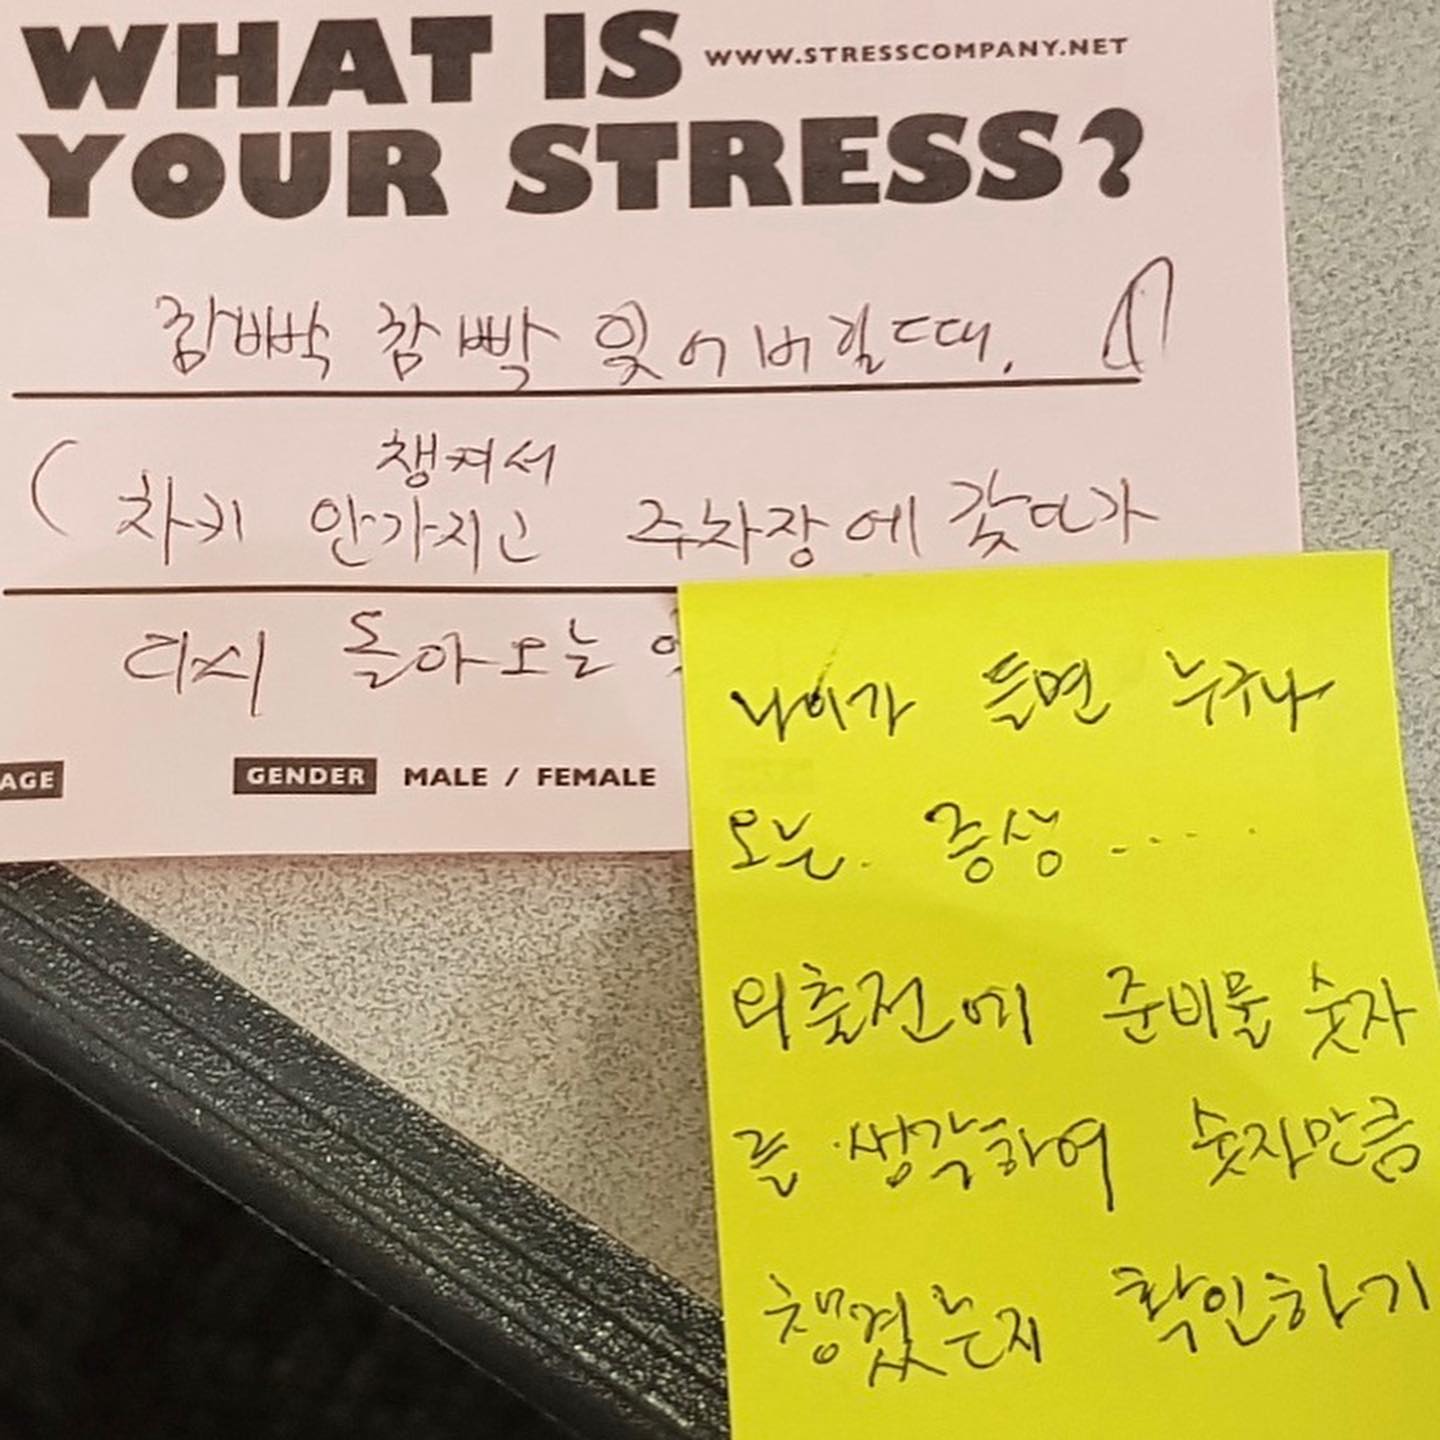 WHAT IS
WWW.STRESSCOMPANY.NET
YOUR STRESS?
깜빡 깜빡 잊어버릴때.
챙겨서
(차키 안가지고 주차장에 갔다가
다시 돌아오는
AGE GENDER MALE / FEMALE
나이가 들면 누구나
오는. 증상.....
외출전에 준비물 숫자
를 생각하여 숫자만큼
챙겼는지 확인하기